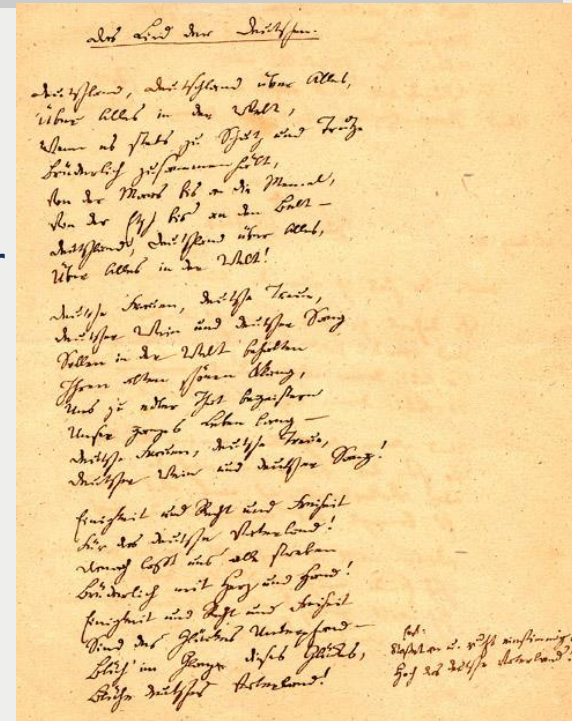 Das Lied der Deutschen.
Deutschland, Deutschland über Alles,
Über Alles in der Welt,
Wenn es stets zu Schutz und Trutze
Brüderlich zusammen hält,
Von der Maas bis an die Memel,
Von der Etsch bis an den Belt –
Deutschland, Deutschland über Alles,
Über Alles in der Welt!
Deutsche Frauen, deutsche Treue,
Deutscher Wein und deutscher Sang
Sollen in der Welt behalten
Ihren alten schönen Klang,
Uns zu edler That begeistern
Unser ganzes Leben lang –
Deutsche Frauen, deutsche Treue,
Deutscher Wein und deutscher Sang!
Einigkeit und Recht und Freiheit
Für das deutsche Vaterland!
Danach laßt uns alle streben
Brüderlich mit Herz und Hand!
Einigkeit und Recht und Freiheit
Sind des Glückes Unterpfand –
Blüh' im Glanze dieses Glückes,
Blühe deutsches Vaterland!
Stoßet an u. ruft einstimmig:
Hoch das deutsche Vaterland!